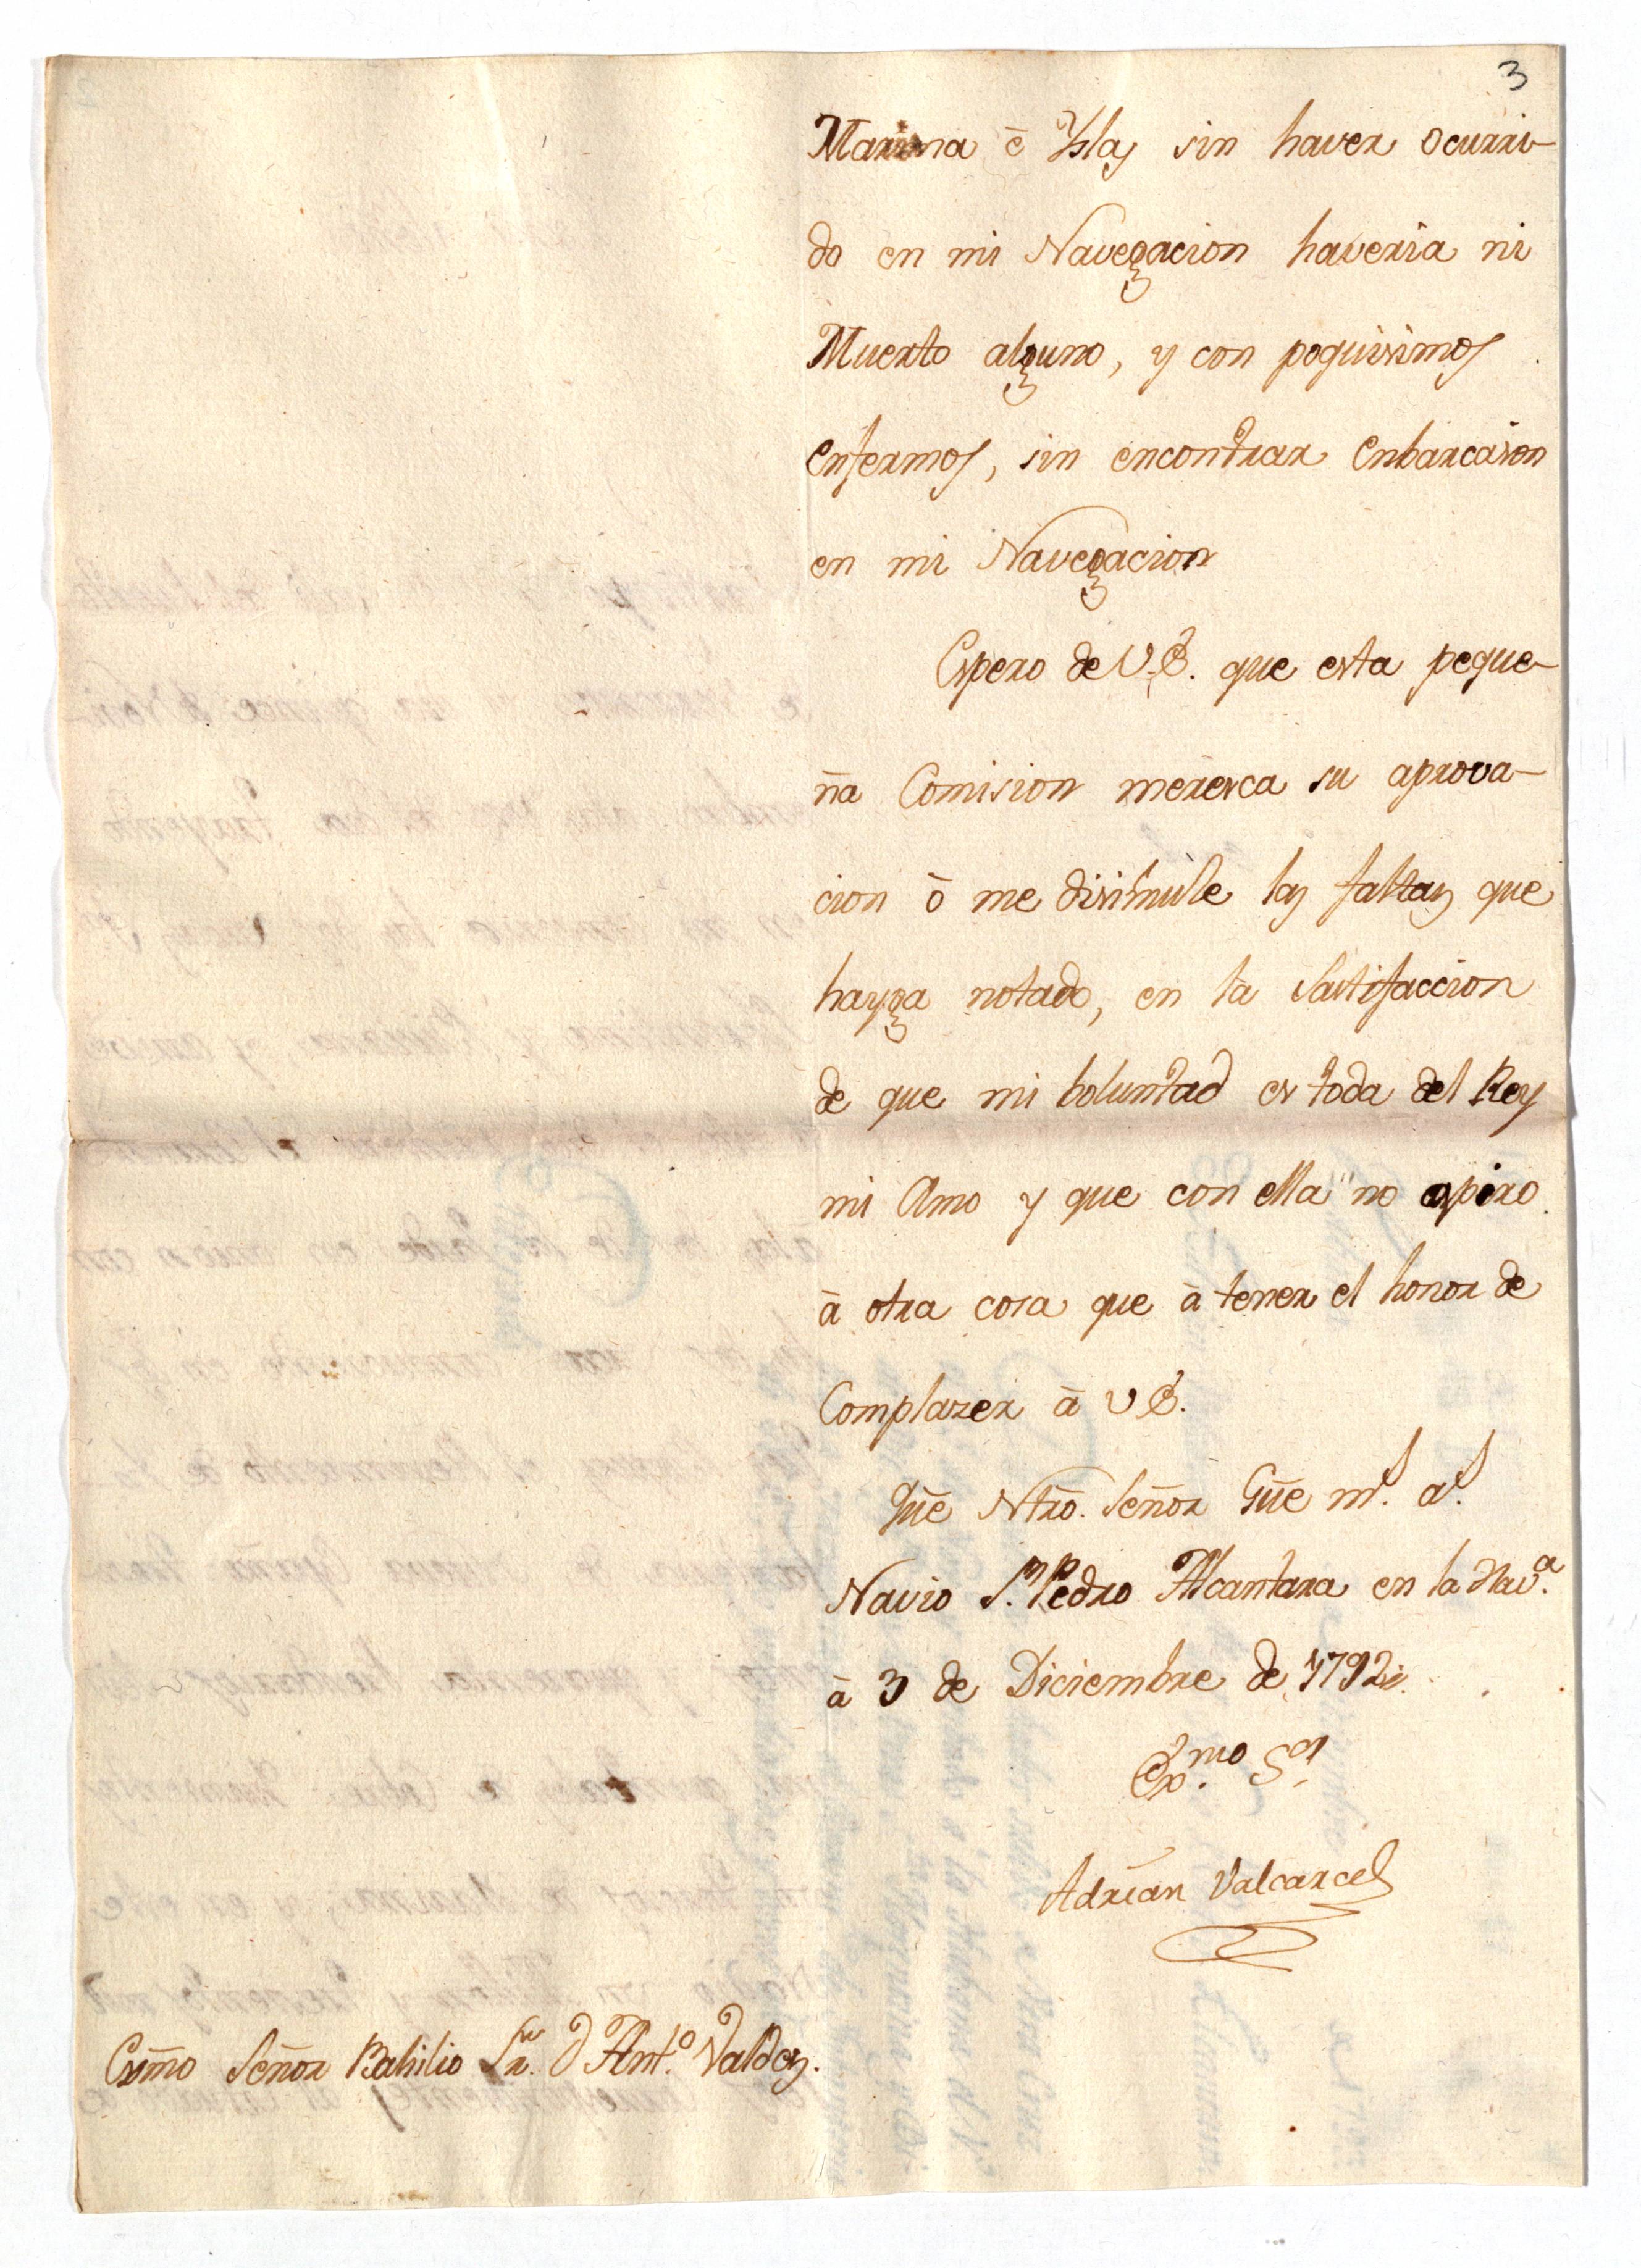 3
Marina è Yslas sin haver ocurri-
do en mi Navegacion haveria ni
Muerto alguno, y con poquisimos
enfermos, sin encontrar enbarcasion
en mi Navegacion
Espero de V.E. que esta peque-
ña Comision meresca su aprova-
cion ò me disimule las faltas que
hayga notado, en la Sastifaccion
de que mi boluntad es toda del Rey
mi Amo y que con ella no aspiro
à otra cosa que à tener el honor de
Complazer à V E.
Que Ntrō. Señor Gūe ms. as.
Navio Sn. Pedro Alcantara en la Hava.
à 3 de Diciembre de 1792
Exmo. Sor
Adrian Valcarcel
Exm̄o Señor Bahilio Fr. D Anto. Valdes.